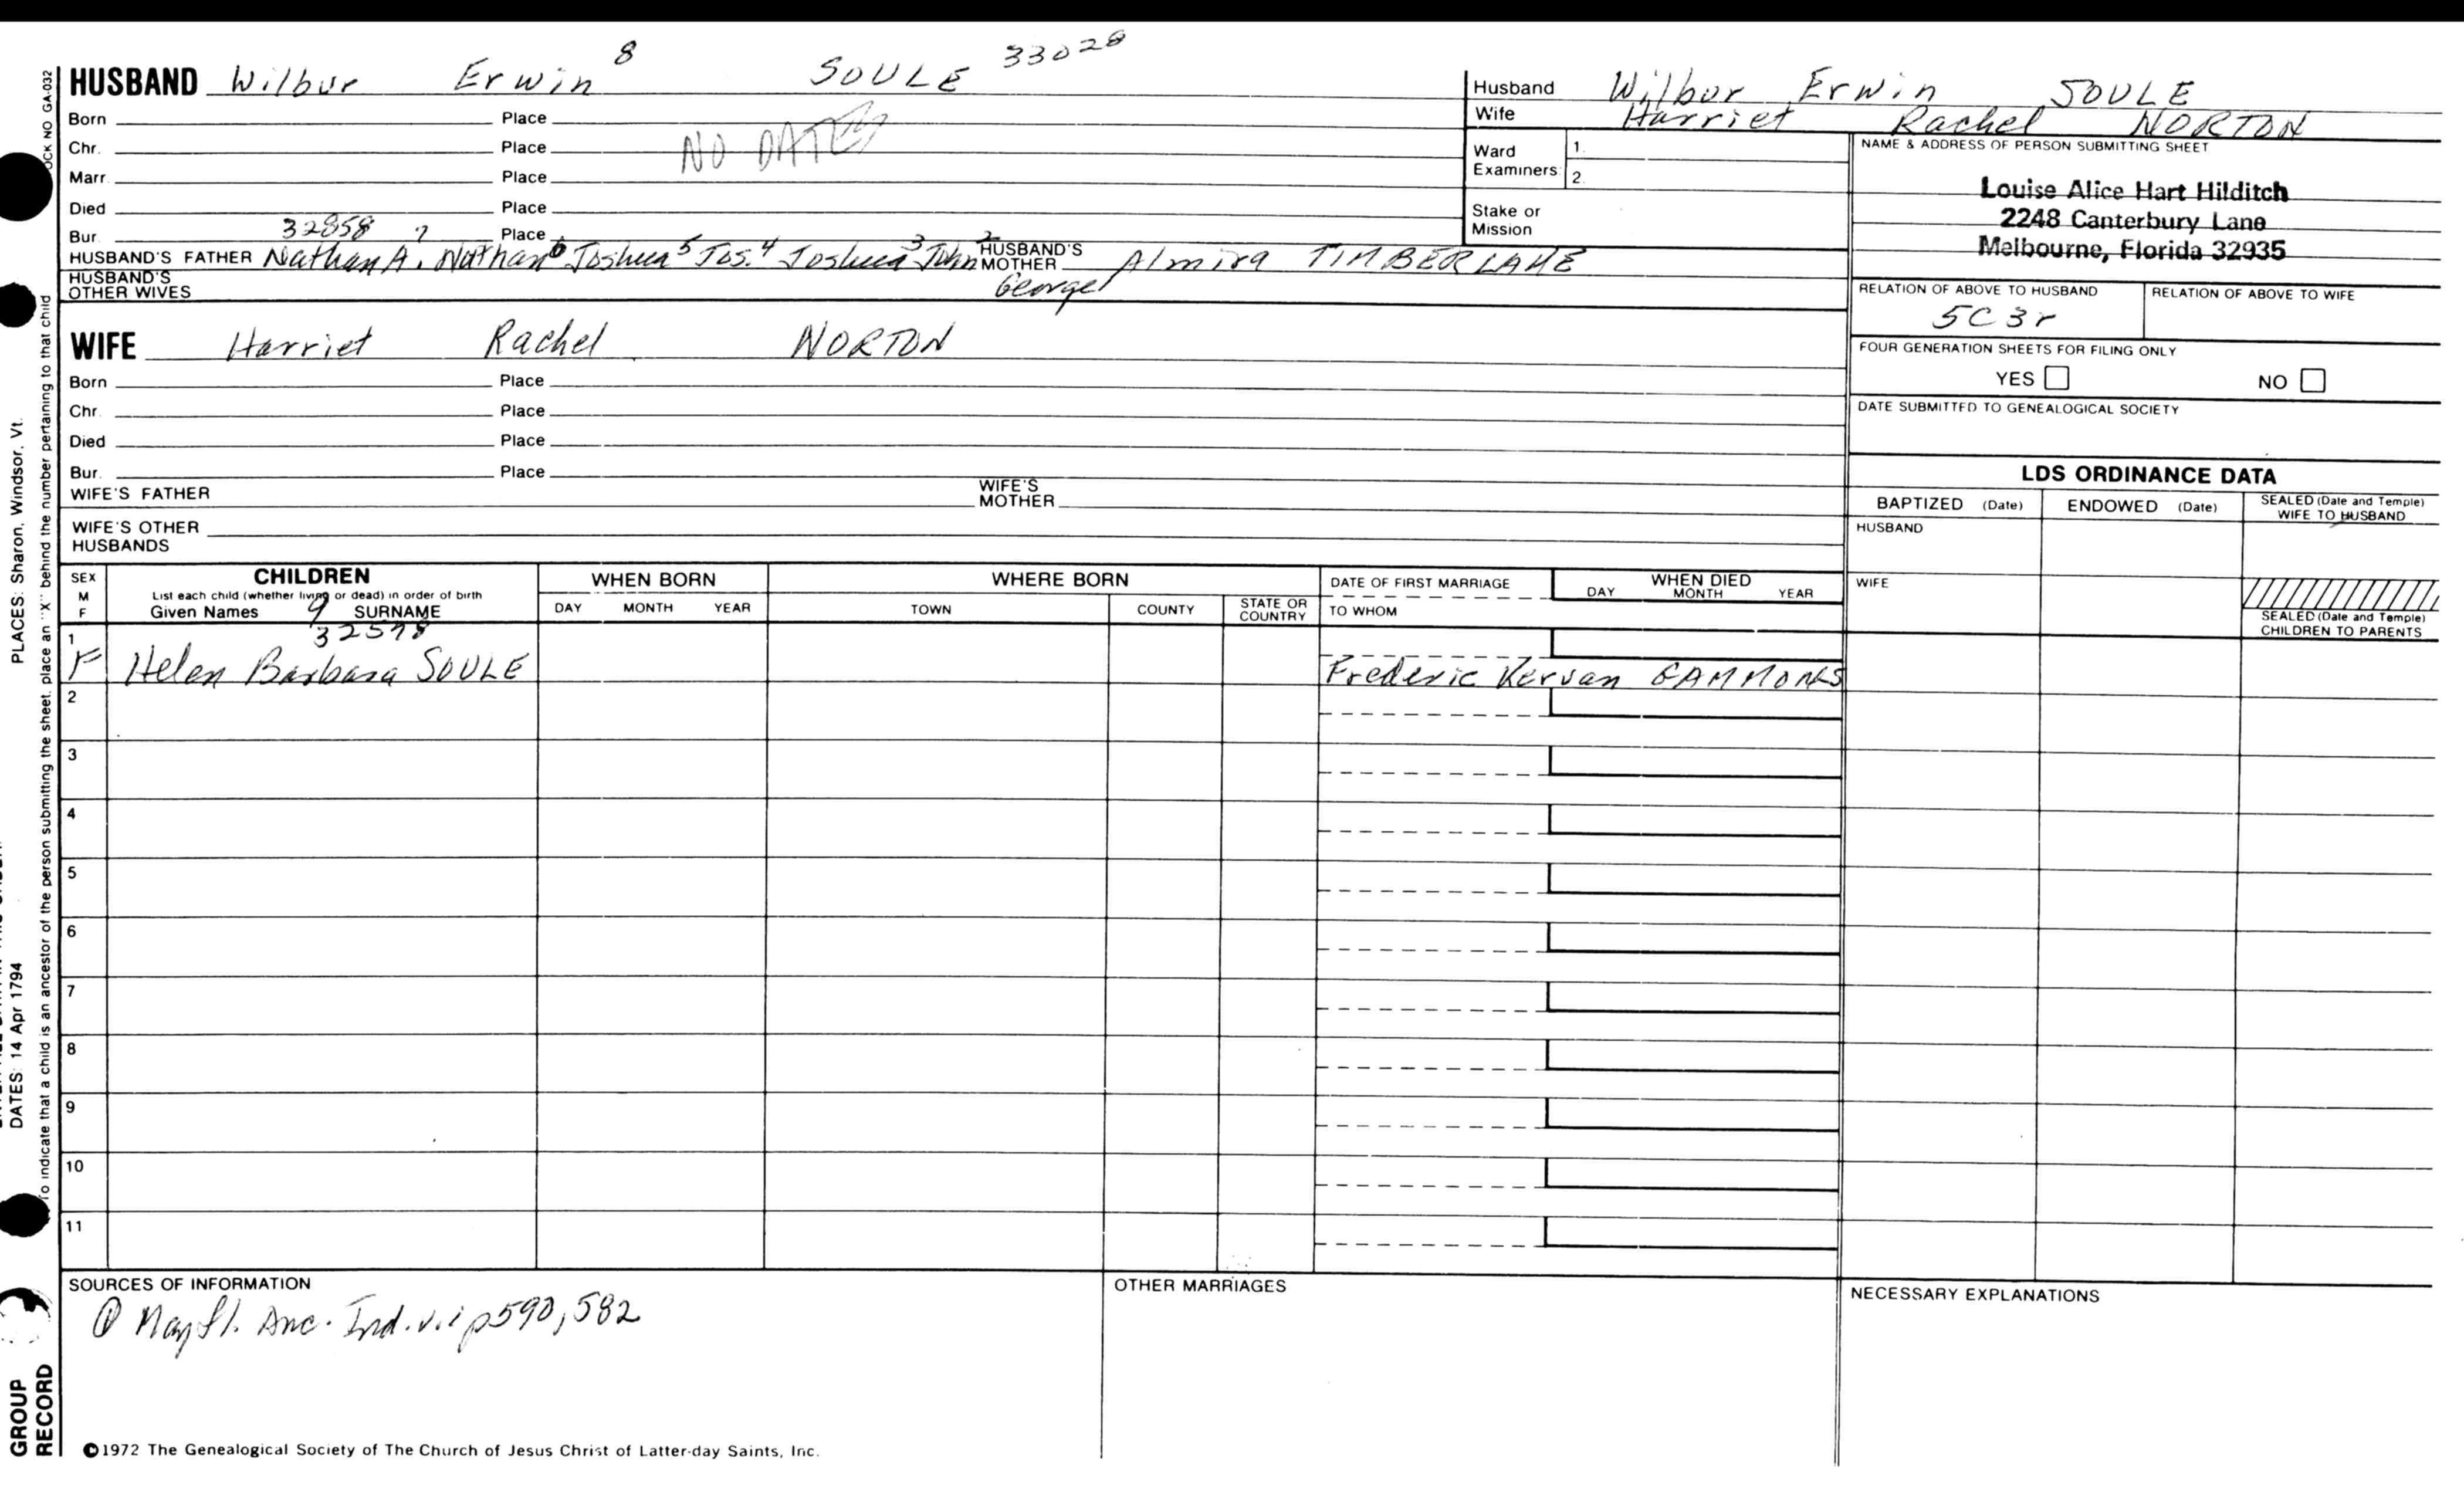 HUSBAND Wilbur Erwin 8 SOULE 33028
Born Place
Chr. Place
NO DATES
Marr. Place
Died Place
32858 7
Bur. Place
HUSBAND'S FATHER Nathan A. Nathan 6 Joshua 5 Jos. 4 Joshua 3 John 2 HUSBAND'S MOTHER Almira TIMBERLAKE
George 1
HUSBAND'S OTHER WIVES
WIFE Harriet Rachel NORTON
Born Place
Chr. Place
Died Place
Bur. Place
WIFE'S FATHER WIFE'S MOTHER
WIFE'S OTHER HUSBANDS
Husband Wilbur Erwin SOULE
Wife Harriet Rachel NORTON
Ward Examiners 1. 2.
Stake or Mission
NAME & ADDRESS OF PERSON SUBMITTING SHEET
Louise Alice Hart Hilditch
2248 Canterbury Lane
Melbourne, Florida 32935
RELATION OF ABOVE TO HUSBAND RELATION OF ABOVE TO WIFE
5C3r
FOUR GENERATION SHEETS FOR FILING ONLY
YES NO
DATE SUBMITTED TO GENEALOGICAL SOCIETY
LDS ORDINANCE DATA
BAPTIZED (Date) ENDOWED (Date) SEALED (Date and Temple) WIFE TO HUSBAND
HUSBAND
WIFE
SEALED (Date and Temple) CHILDREN TO PARENTS
SEX M F
CHILDREN
List each child (whether living or dead) in order of birth
Given Names SURNAME
WHEN BORN
DAY MONTH YEAR
WHERE BORN
TOWN COUNTY STATE OR COUNTRY
DATE OF FIRST MARRIAGE
TO WHOM
WHEN DIED
DAY MONTH YEAR
9
32578
1 F Helen Barbara SOULE Frederic Kervan GAMMONS
2
3
4
5
6
7
8
9
10
11
SOURCES OF INFORMATION
① Mayfl. Anc. Ind. v.i p590, 582
OTHER MARRIAGES
NECESSARY EXPLANATIONS
©1972 The Genealogical Society of The Church of Jesus Christ of Latter-day Saints, Inc.
OCK NO GA-032
To indicate that a child is an ancestor of the person submitting the sheet, place an "X" behind the number pertaining to that child
PLACES: Sharon, Windsor, Vt.
DATES: 14 Apr 1794
GROUP
RECORD